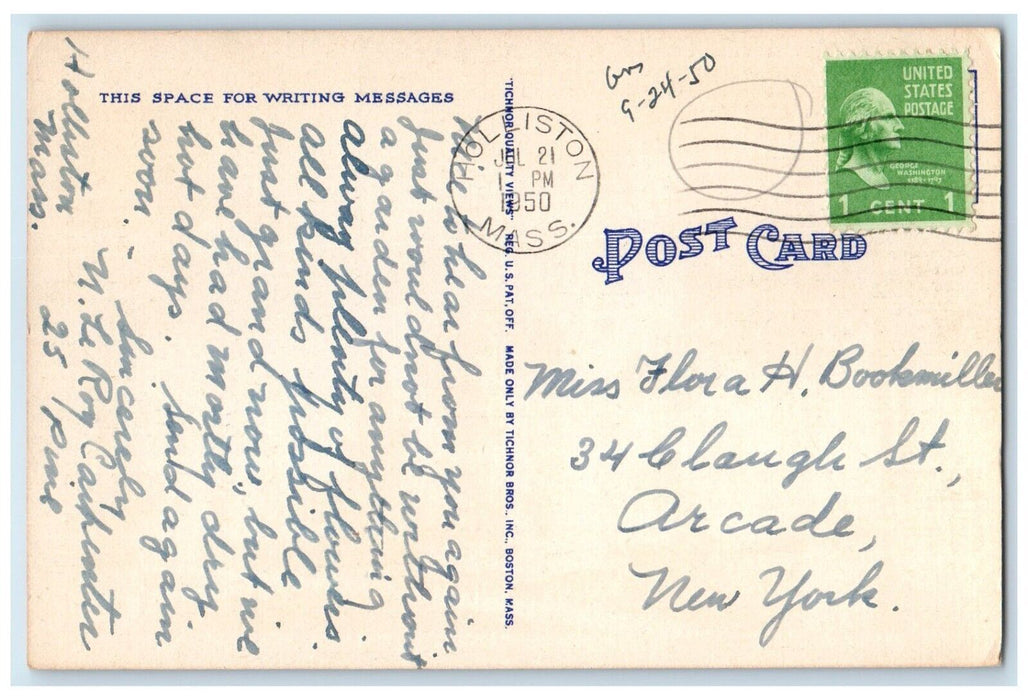 THIS SPACE FOR WRITING MESSAGES
Nice to hear from you again
Just would not be without
a garden for anything
alway plenty of flowers
all kinds possible
just grand now, but we
have had mostly dry
hot days. Send again
soon
Sincerely
N. Le Roy Carpenter
25 Pine
Holliston
Mass.
"TICHNOR QUALITY VIEWS," REG. U.S. PAT. OFF. MADE ONLY BY TICHNOR BROS., INC., BOSTON, MASS.
HOLLISTON
JUL 21
PM
1950
MASS.
Ans
9-24-50
UNITED
STATES
POSTAGE
GEORGE
WASHINGTON
1789-1797
1 CENT 1
POST CARD
Miss Flora H. Bookmiller
34 Claugh St.,
Arcade,
New York.